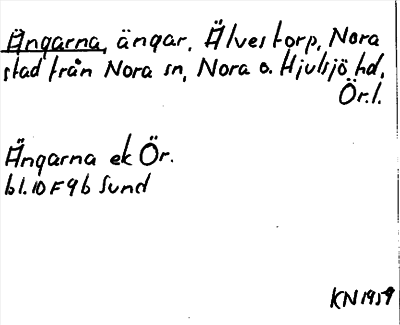 Ängarna, ängar, Älvestorp, Nora
stad från Nora sn, Nora o. Hjulsjö hd,
Ör. l.
Ängarna ek Ör.
bl. 10 F 9 b Sund
KN 1959